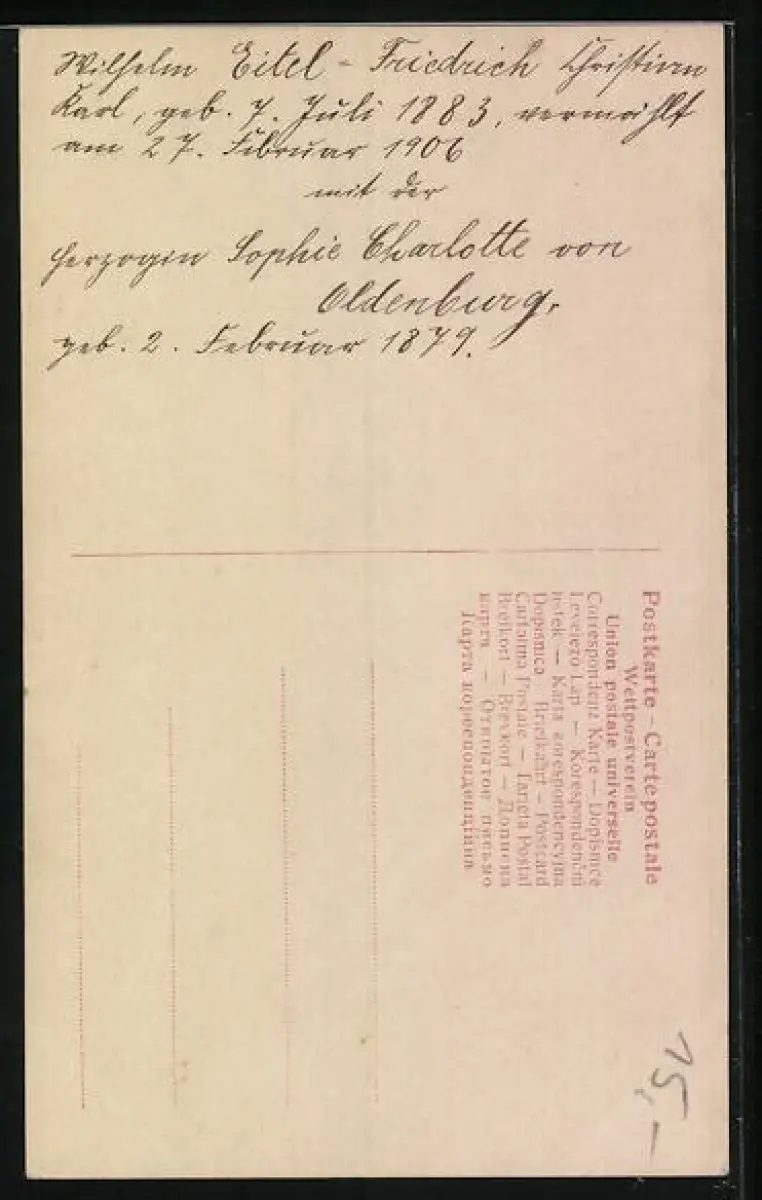 Wilhelm Eitel-Friedrich Christian
Karl, geb. 7. Juli 1883, vermählt
am 27. Februar 1906
mit der
Herzogin Sophie Charlotte von
Oldenburg,
geb. 2. Februar 1879.
Postkarte – Carte postale
Weltpostverein
Union postale universelle
Correspondenz Karte — Dopisnice
Levelező Lap — Korespondenční
lístek — Karta korespondencyjna
Dopisnica — Briefkaart — Postcard
Cartolina Postale — Tarjeta Postal
Brefkort — Brevkort — Дописна
карта — Открытое письмо
Карта кореспонденційна
15,—